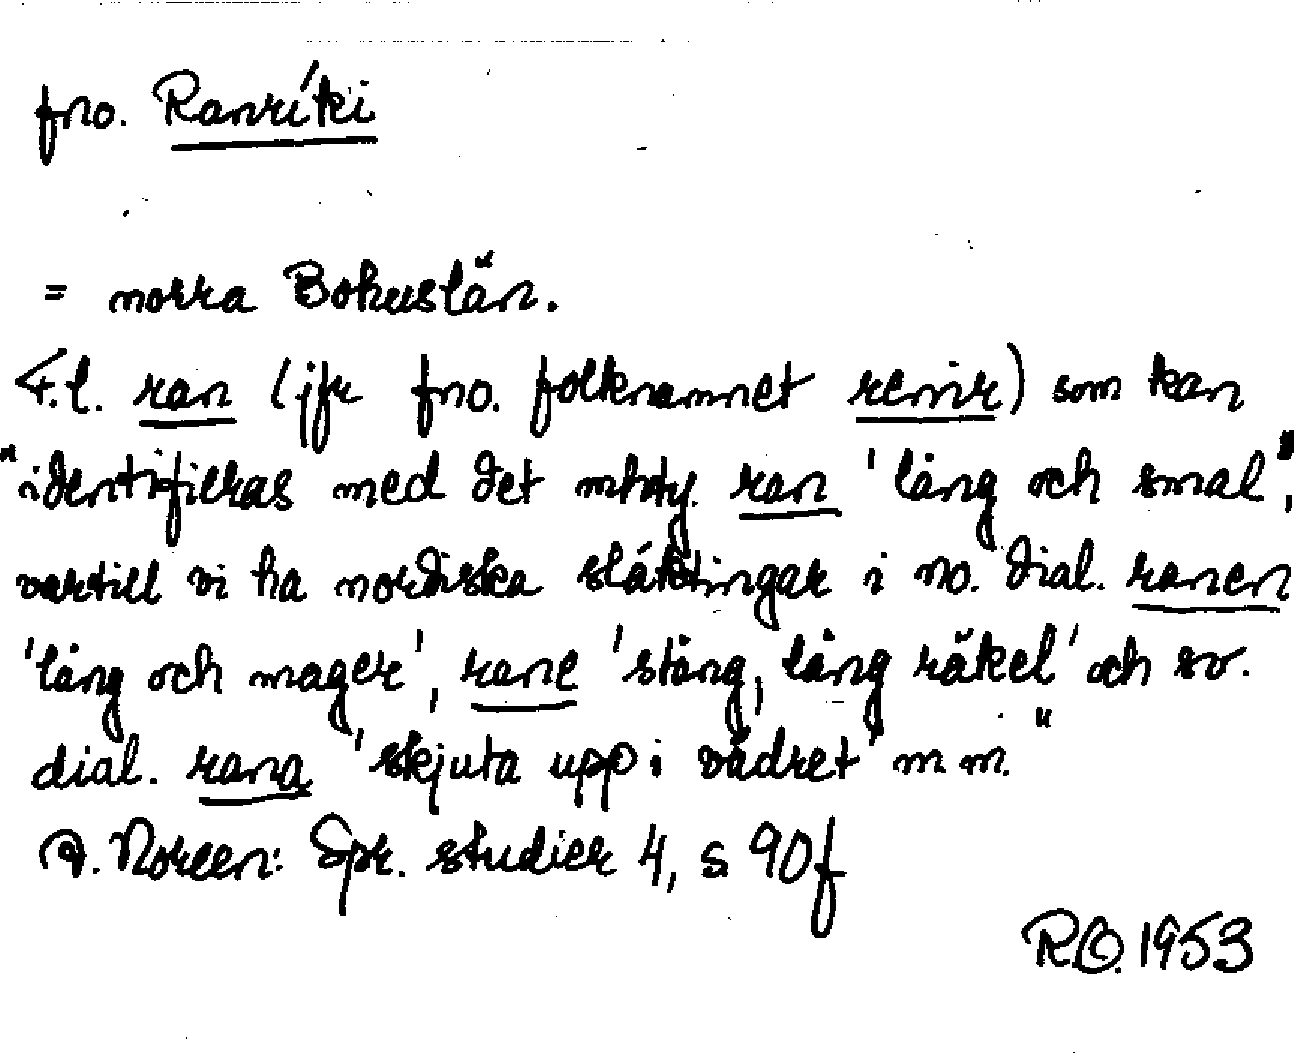 fno. Ranríki
= norra Bohuslän.
F.l. ran (jfr fno. folknamnet renir) som kan
"identifieras med det mhty. ran 'lång och smal',
vartill vi ha nordiska släktingar i no. dial. ranen
'lång och mager', rane 'stång, lång räkel' och sv.
dial. rana 'skjuta upp i vädret' m m."
A. Noreen: Spr. studier 4, s 90f
R.O. 1953